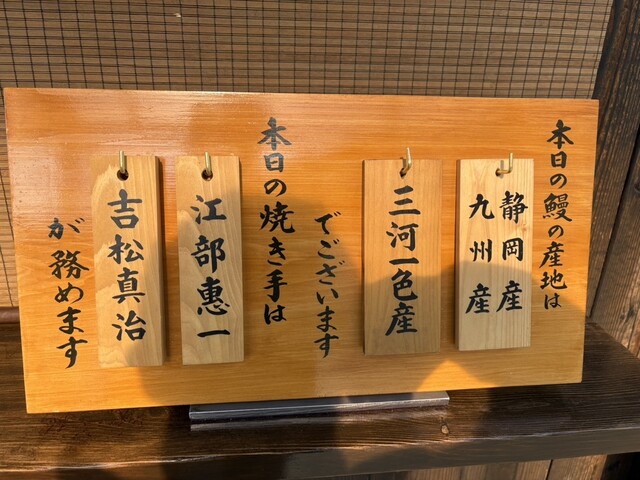 本日の鰻の産地は
静岡産
九州産
三河一色産
でございます
本日の焼き手は
江部恵一
吉松真治
が務めます